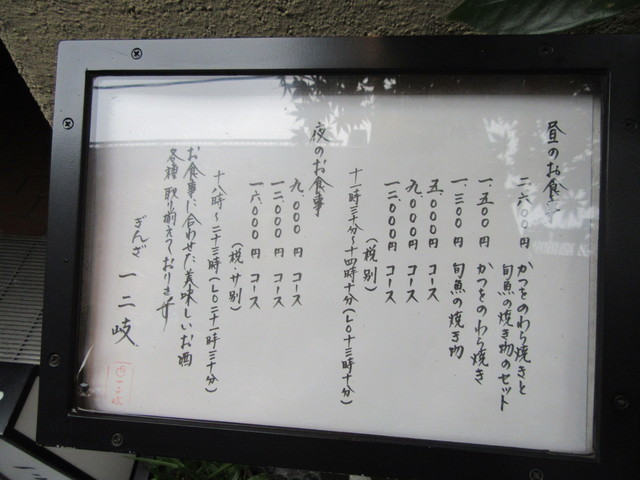 昼のお食事
二.六〇〇円 かつをのわら焼きと
旬魚の焼き物のセット
一.五〇〇円 かつをのわら焼き
一.三〇〇円 旬魚の焼き物
五.〇〇〇円 コース
九.〇〇〇円 コース
一二.〇〇〇円 コース
(税別)
十一時三十分〜十四時十分(L〇十三時十分)
夜のお食事
九.〇〇〇円 コース
一二.〇〇〇円 コース
一六.〇〇〇円 コース
(税・サ別)
十八時〜二十三時(L〇二十一時三十分)
お食事に合わせた美味しいお酒
各種取り揃えております
ぎんざ 一二岐